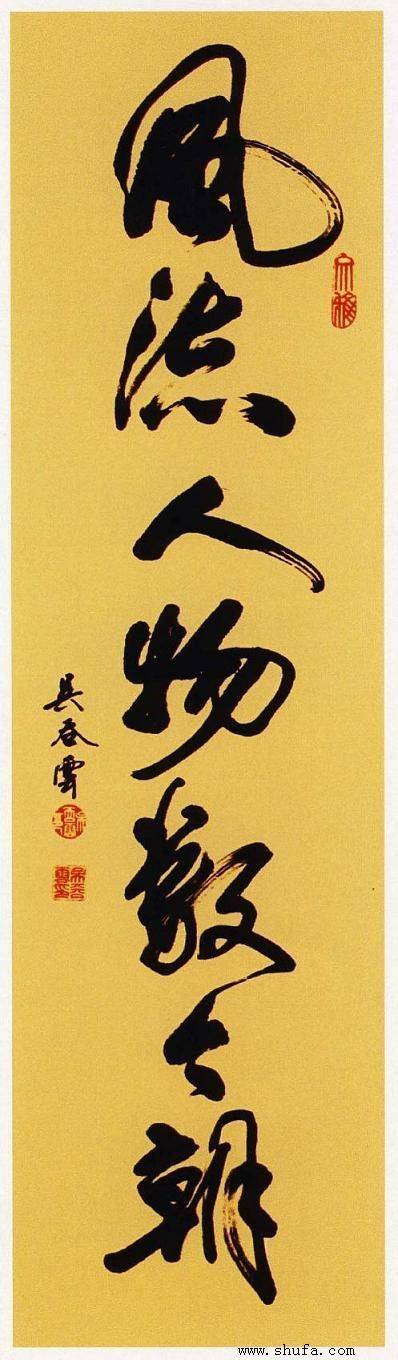 風流人物数今朝
吴吞雲
www.shufa.com